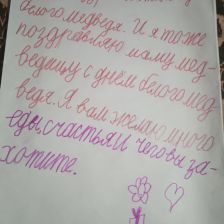 белого медведя. И я тоже
поздравляю маму мед-
ведицу с днём белого мед
ведя. Я вам желаю много
еды, счастья и чего вы за-
хотите.